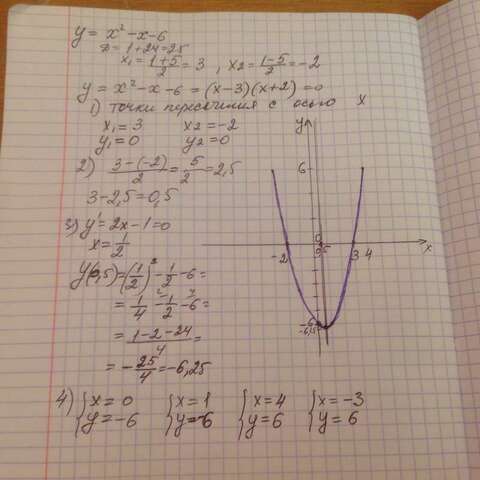 y = x² - x - 6
D = 1 + 24 = 25
x₁ = (1+5)/2 = 3 , x₂ = (1-5)/2 = -2
y = x² - x - 6 = (x-3)(x+2) = 0
1) точки пересечения с осью x
x₁ = 3 x₂ = -2
y₁ = 0 y₂ = 0
2) (3-(-2))/2 = 5/2 = 2,5
3 - 2,5 = 0,5
3) y' = 2x - 1 = 0
x = 1/2
y(0,5) = (1/2)² - 1/2 - 6 =
= 1/4 - 1/2 - 6 =
= (1-2-24)/4 =
= -25/4 = -6,25
4) {x = 0 {x = 1 {x = 4 {x = -3
y = -6 y = -6 y = 6 y = 6
y
6
0
-2 0,5 3 4 x
-6